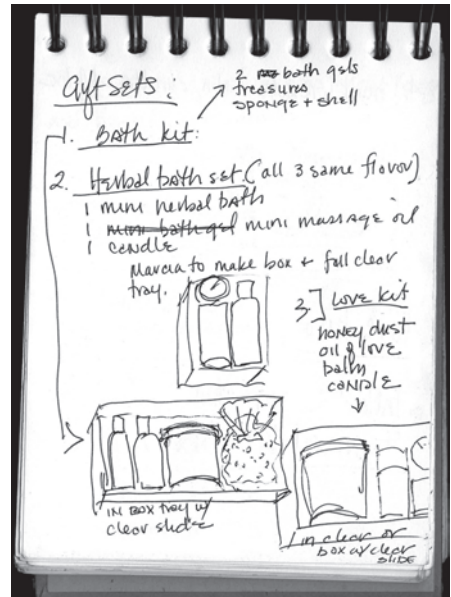 Gift Sets:
1. Bath kit:
2 bath gels
treasures
sponge + shell
2. Herbal bath set (all 3 same flavor)
1 mini herbal bath
1 mini bath gel mini massage oil
1 candle
Marcia to make box + full clear
tray.
3.] Love kit
honey dust
oil of love
balm
candle
in box tray w/
clear slide
in clear or
box w/ clear
slide